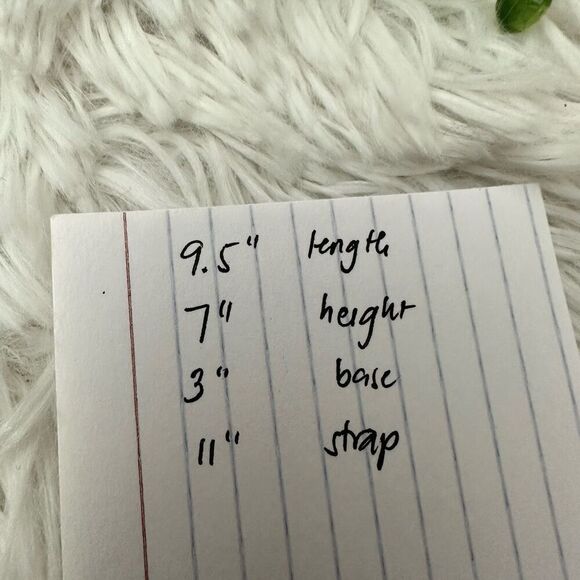 9.5" length
7" height
3" base
11" strap